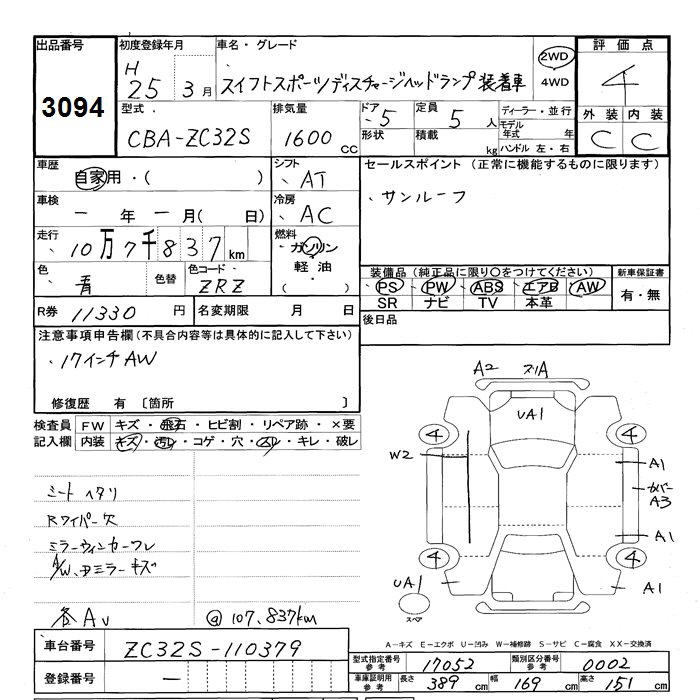 出品番号 3094
初度登録年月 H 25 3月
車名・グレード スイフトスポーツディスチャージヘッドランプ装着車
2WD 4WD
評価点 4
外装 内装
C C
型式 CBA-ZC32S
排気量 1600 CC
ドア 5
形状
定員 5 人
積載 kg
ディーラー・並行
モデル年式 年
ハンドル 左・右
車歴 自家用・( )
シフト AT
セールスポイント (正常に機能するものに限ります)
サンルーフ
車検 — 年 — 月( 日)
冷房 AC
走行 10万7千837km
燃料 ガソリン 軽油 ( )
色 青 色替
色コード ZRZ
装備品(純正品に限り○をつけてください)
PS PW ABS エアB AW
SR ナビ TV 本革
新車保証書 有・無
R券 11330 円
名変期限 月 日
後日品
注意事項申告欄(不具合内容等は具体的に記入して下さい)
17インチAW
修復歴 有 〔箇所 〕
検査員記入欄
FW キズ・飛石・ヒビ割・リペア跡・×要
内装 キズ・汚レ・コゲ・穴・スレ・キレ・破レ
シートヘタリ
Rワイパー欠
ミラーウィンカーワレ
A/W、ドミラーキズ
各AU
@107,837km
A2 スリA
UA1
4 4
W2
A1
カバーA3
A1
4 4
UA1 A1
スペア
A-キズ E-エクボ U-凹み W-補修跡 S-サビ C-腐食 XX-交換済
車台番号 ZC32S-110379
登録番号 —
型式指定番号 参考 17052
類別区分番号 参考 0002
車庫証明用 参考 長さ 389 cm 幅 169 cm 高さ 151 cm